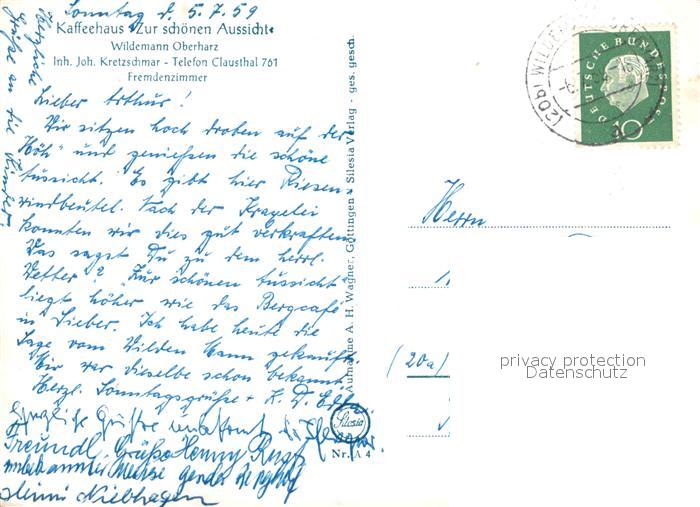 Sonntag d. 5.7.59
Kaffeehaus „Zur schönen Aussicht“
Wildemann Oberharz
Inh. Joh. Kretzschmar - Telefon Clausthal 761
Fremdenzimmer
Lieber Arthur!
Wir sitzen hoch droben auf der
Höh" und geniessen die schöne
Aussicht. Es gibt hier Riesen
windbeutel. Nach der
konnten wir dies gut verkraften.
Was sagst Du zu dem herrl.
Wetter? "Zur schönen Aussicht"
liegt höher wie das Bergcafé
in Sieber. Ich habe heute die
Sage vom Wilden Mann gekauft.
Mir war dieselbe schon bekannt.
Herzl. Sonntagsgrüße
Herzliche Grüße
Freundl. Grüße Henny
unbekannterweise
Niebhagen
Herzliche
Grüße an die Kinder
Aufnahme A. H. Wagner, Göttingen • Silesia Verlag - ges. gesch.
Silesia
Nr. A 4
DEUTSCHE BUNDESPOST
10
(20b) WILDEMANN
Herrn
(20a)
privacy protection
Datenschutz